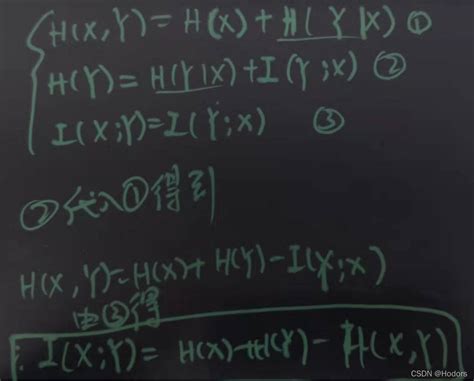 H(X,Y) = H(X) + H(Y|X) ①
H(Y) = H(Y|X) + I(Y;X) ②
I(X;Y) = I(Y;X) ③
②代入①得到
H(X,Y) = H(X) + H(Y) - I(Y;X)
由③得
I(X;Y) = H(X) + H(Y) - H(X,Y)
CSDN @Hodors